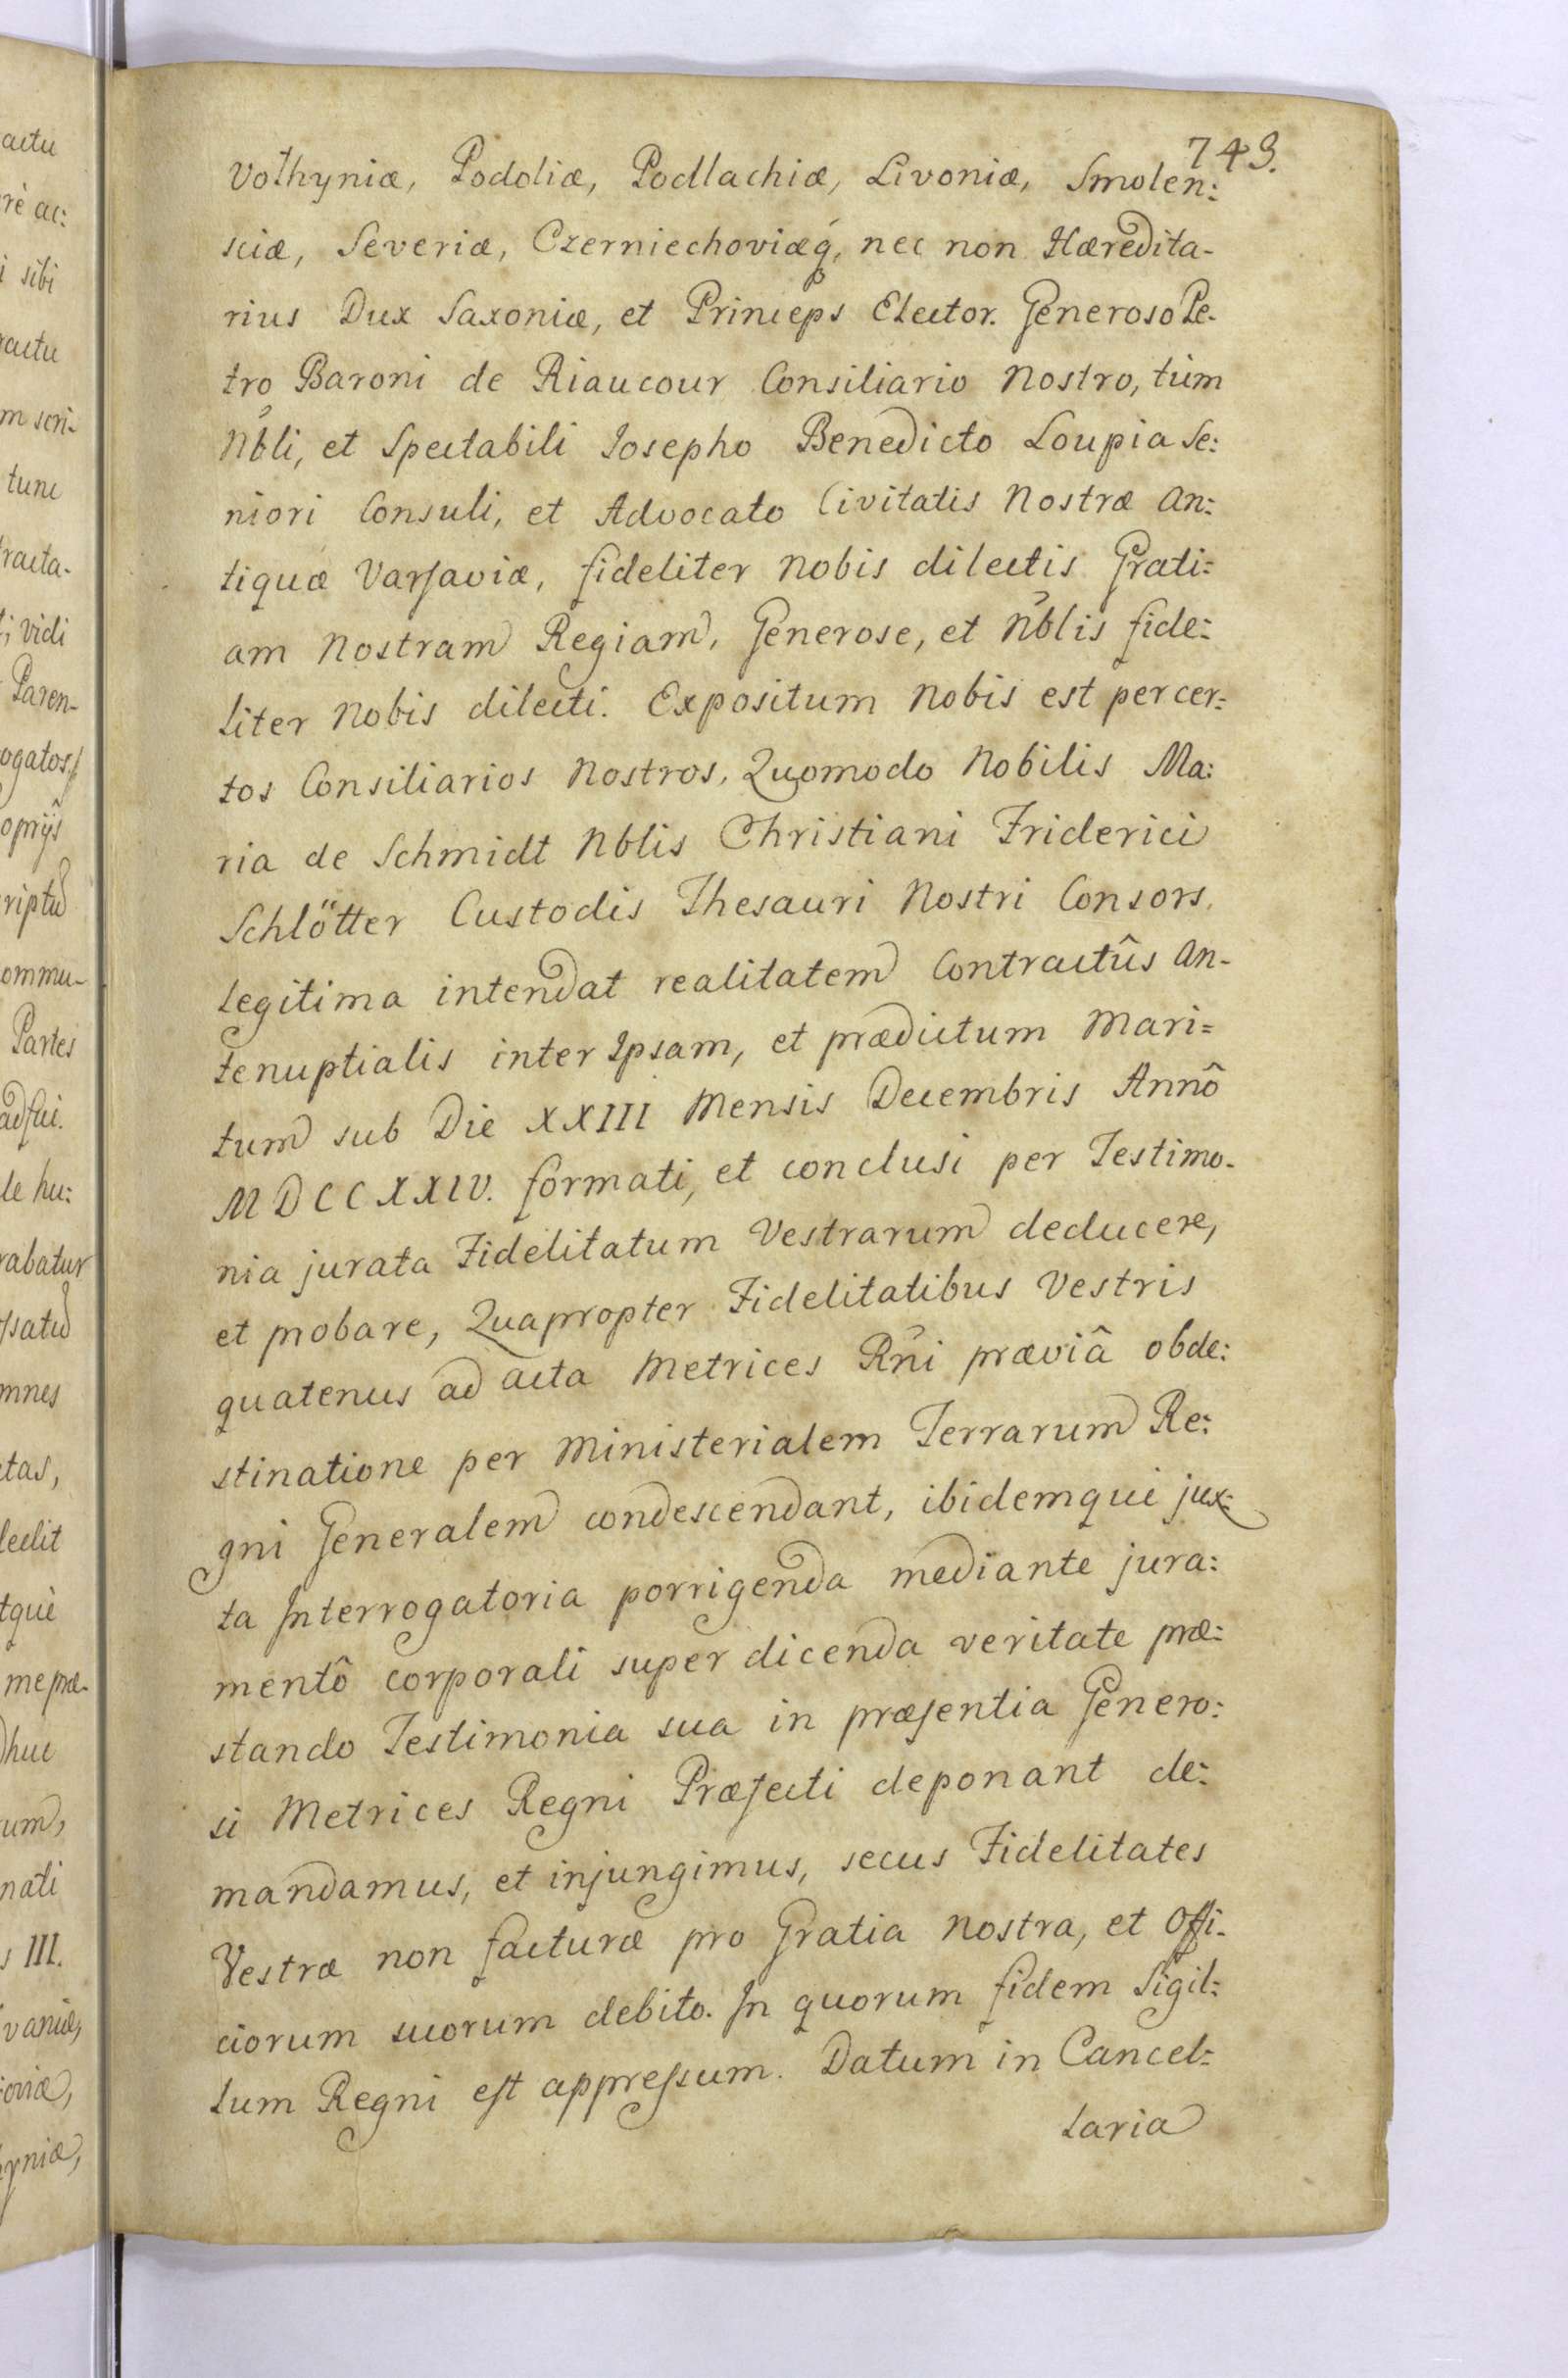 743.
Volhyniæ, Podoliæ, Podlachiæ, Livoniæ, Smolen:
sciæ, Severiæ, Czerniechoviæq́, nec non Hæredita-
rius Dux Saxoniæ, et Princeps Elector. Generoso Pe-
tro Baroni de Riaucour Consiliario Nostro, tum
Nbli, et Spectabili Josepho Benedicto Loupia Se:
niori Consuli, et Advocato Civitatis Nostræ An:
tiquæ Varsaviæ, fideliter Nobis dilectis Grati:
am Nostram Regiam, Generose, et Nblis fide:
liter Nobis dilecti. Expositum Nobis est per cer:
tos Consiliarios Nostros, Quomodo Nobilis Ma:
ria de Schmidt Nblis Christiani Friderici
Schlötter Custodis Thesauri Nostri Consors
legitima intendat realitatem Contractûs An-
tenuptialis inter Ipsam, et prædictum Mari=
tum sub Die XXIII Mensis Decembris Annô
MDCCXXIV. formati, et conclusi per Testimo-
nia jurata Fidelitatum Vestrarum deducere,
et probare, Quapropter Fidelitatibus Vestris
quatenus ad acta Metrices Rni præviâ obde:
stinatione per Ministerialem Terrarum Re:
gni Generalem condescendant, ibidemque jux:
ta Interrogatoria porrigenda mediante jura:
mentô corporali super dicenda veritate præ:
stando Testimonia sua in præsentia Genero:
si Metrices Regni Præfecti deponant de:
mandamus, et injungimus, secus Fidelitates
Vestræ non facturæ pro Gratia Nostra, et Offi-
ciorum suorum debito. In quorum fidem Sigil:
lum Regni est appressum. Datum in Cancel:
laria